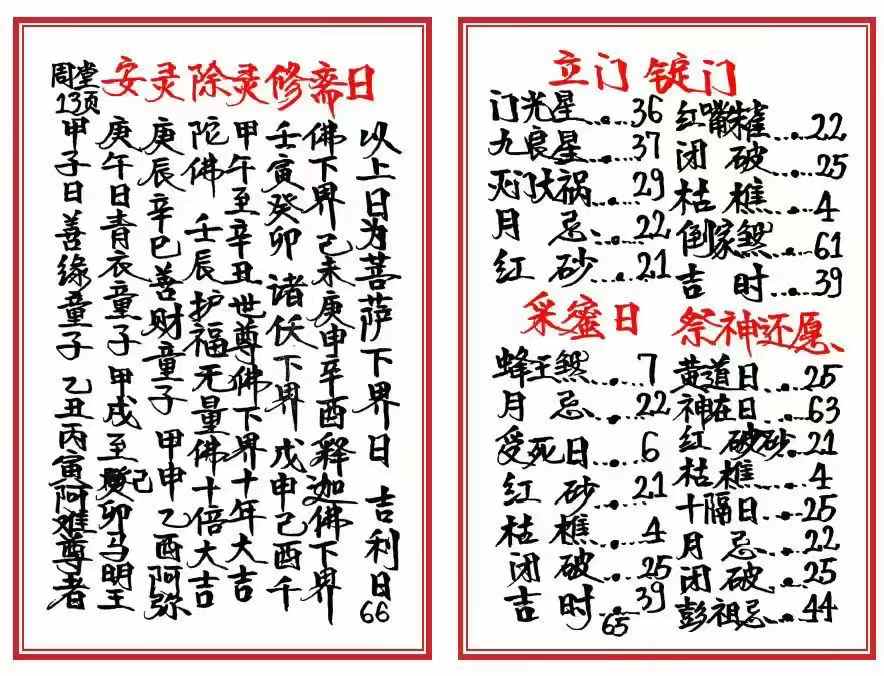 安灵除灵修斋日
周堂
13页
甲子日善缘童子 乙丑丙寅阿难尊者
庚午日青衣童子 甲戌至己卯马明王
庚辰辛巳善财童子 甲申乙酉阿弥
陀佛 壬辰护福无量佛十倍大吉
甲午至辛丑世尊佛下界十年大吉
壬寅癸卯 诸仸下界 戊申己酉千
佛下界己未庚申辛酉释迦佛下界
以上日为菩萨下界日 吉利日
66
立门 锭门
门光星……36
九良星……37
灭门大祸……29
月 忌……22
红 砂……21
红嘴朱雀……22
闭 破……25
枯 樵……4
倒家煞……61
吉 时……39
采蜜日
蜂王煞……7
月 忌……22
受死日……6
红 砂……21
枯 樵……4
闭 破……25
吉 时……39
祭神还愿
黄道日……25
神在日……63
红 砂……21
枯 樵……4
十隔日……25
月 忌……22
闭 破……25
彭祖忌……44
65